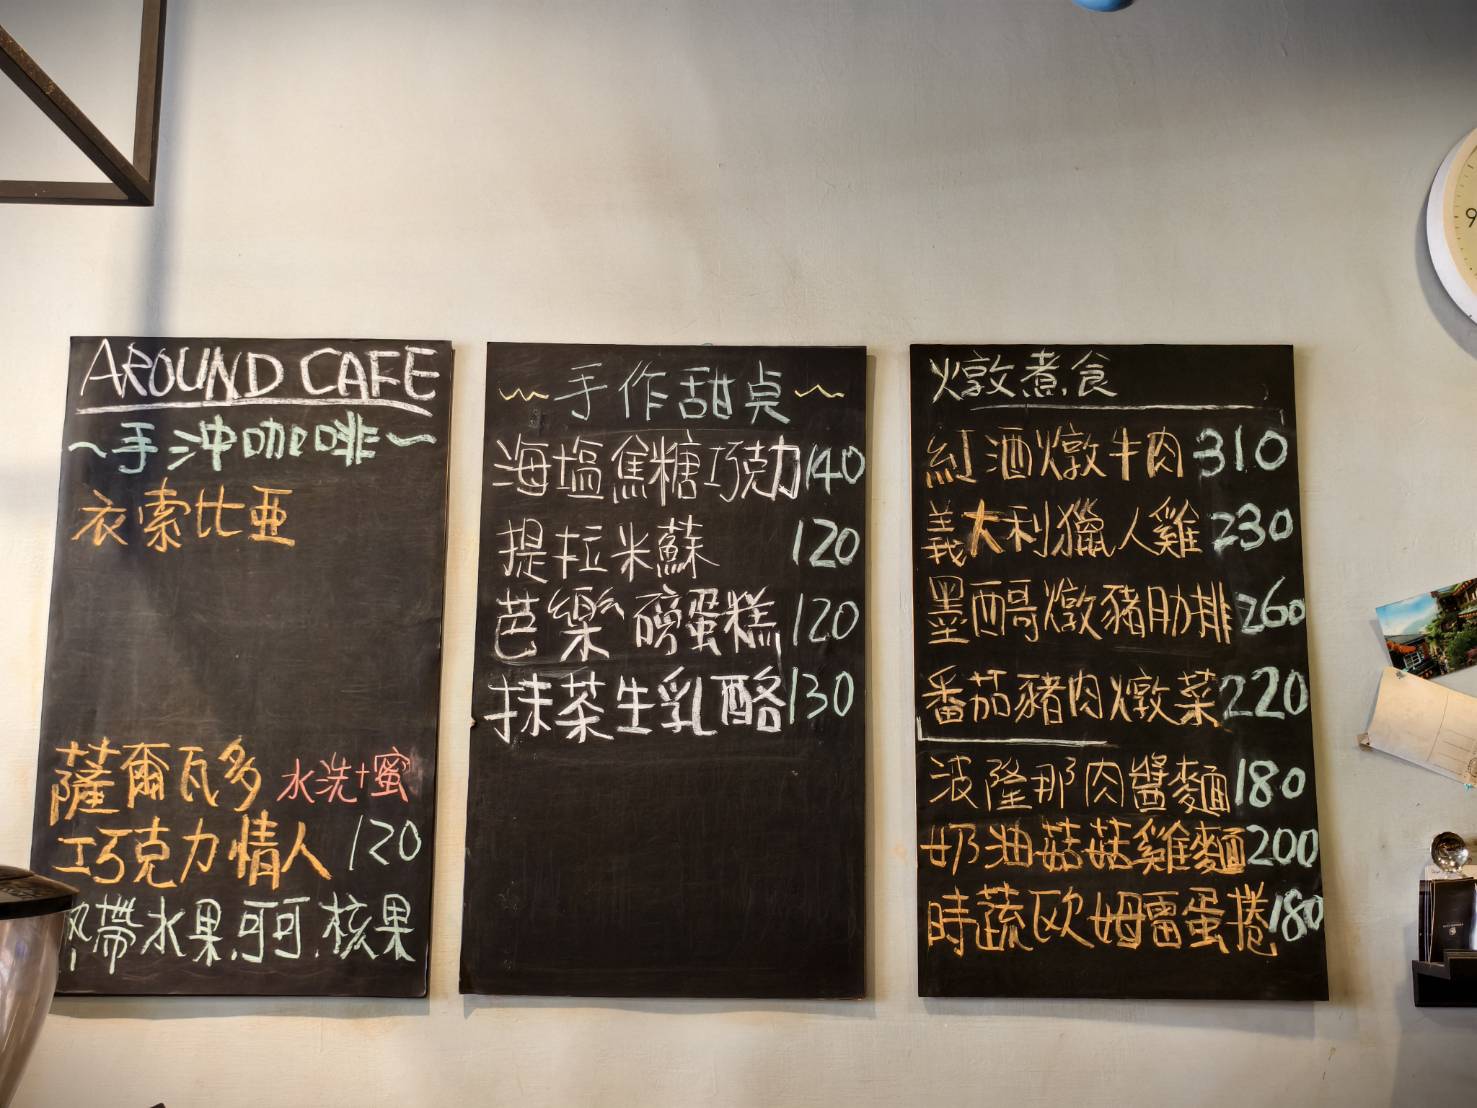 AROUND CAFE
~手沖咖啡~
衣索比亞
薩爾瓦多 水洗+蜜
巧克力情人 120
熱帶水果.可可.核果
手作甜桌
海塩焦糖巧克力 140
提拉米蘇 120
芭樂磅蛋糕 120
抹茶生乳酪 130
燉煮食
紅酒燉牛肉 310
義大利獵人雞 230
墨西哥燉豬肋排 260
番茄豬肉燉菜 220
波隆那肉醬麵 180
奶油菇菇雞麵 200
時蔬歐姆雷蛋捲 180
9